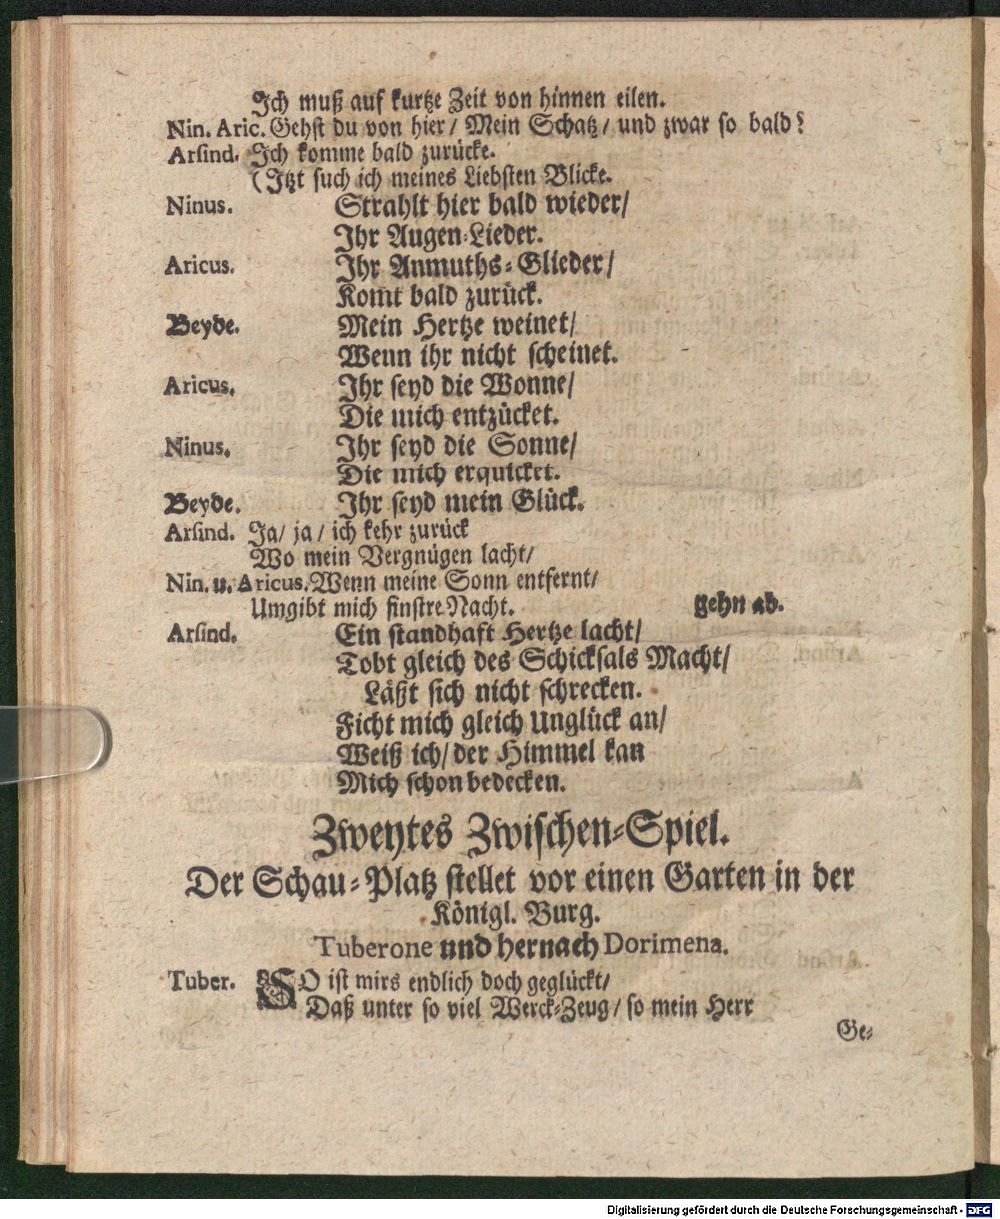 Ich muß auf kurtze Zeit von hinnen eilen.
Nin. Aric. Gehst du von hier/ Mein Schatz/ und zwar so bald?
Arsind. Ich komme bald zurücke.
(Itzt such ich meines Liebsten Blicke.
Ninus. Strahlt hier bald wieder/
Ihr Augen-Lieder.
Aricus. Ihr Anmuths-Glieder/
Komt bald zurück.
Beyde. Mein Hertze weinet/
Wenn ihr nicht scheinet.
Aricus. Ihr seyd die Wonne/
Die mich entzücket.
Ninus. Ihr seyd die Sonne/
Die mich erquicket.
Beyde. Ihr seyd mein Glück.
Arsind. Ja/ ja/ ich kehr zurück
Wo mein Vergnügen lacht/
Nin. u. Aricus. Wenn meine Sonn entfernt/
Umgibt mich finstre Nacht. gehn ab.
Arsind. Ein standhaft Hertze lacht/
Tobt gleich des Schicksals Macht/
Läßt sich nicht schrecken.
Ficht mich gleich Unglück an/
Weiß ich/ der Himmel kan
Mich schon bedecken.
Zweytes Zwischen-Spiel.
Der Schau-Platz stellet vor einen Garten in der
Königl. Burg.
Tuberone und hernach Dorimena.
Tuber. SO ist mirs endlich doch geglückt/
Daß unter so viel Werck-Zeug/ so mein Herr
Ge-
Digitalisierung gefördert durch die Deutsche Forschungsgemeinschaft - DFG